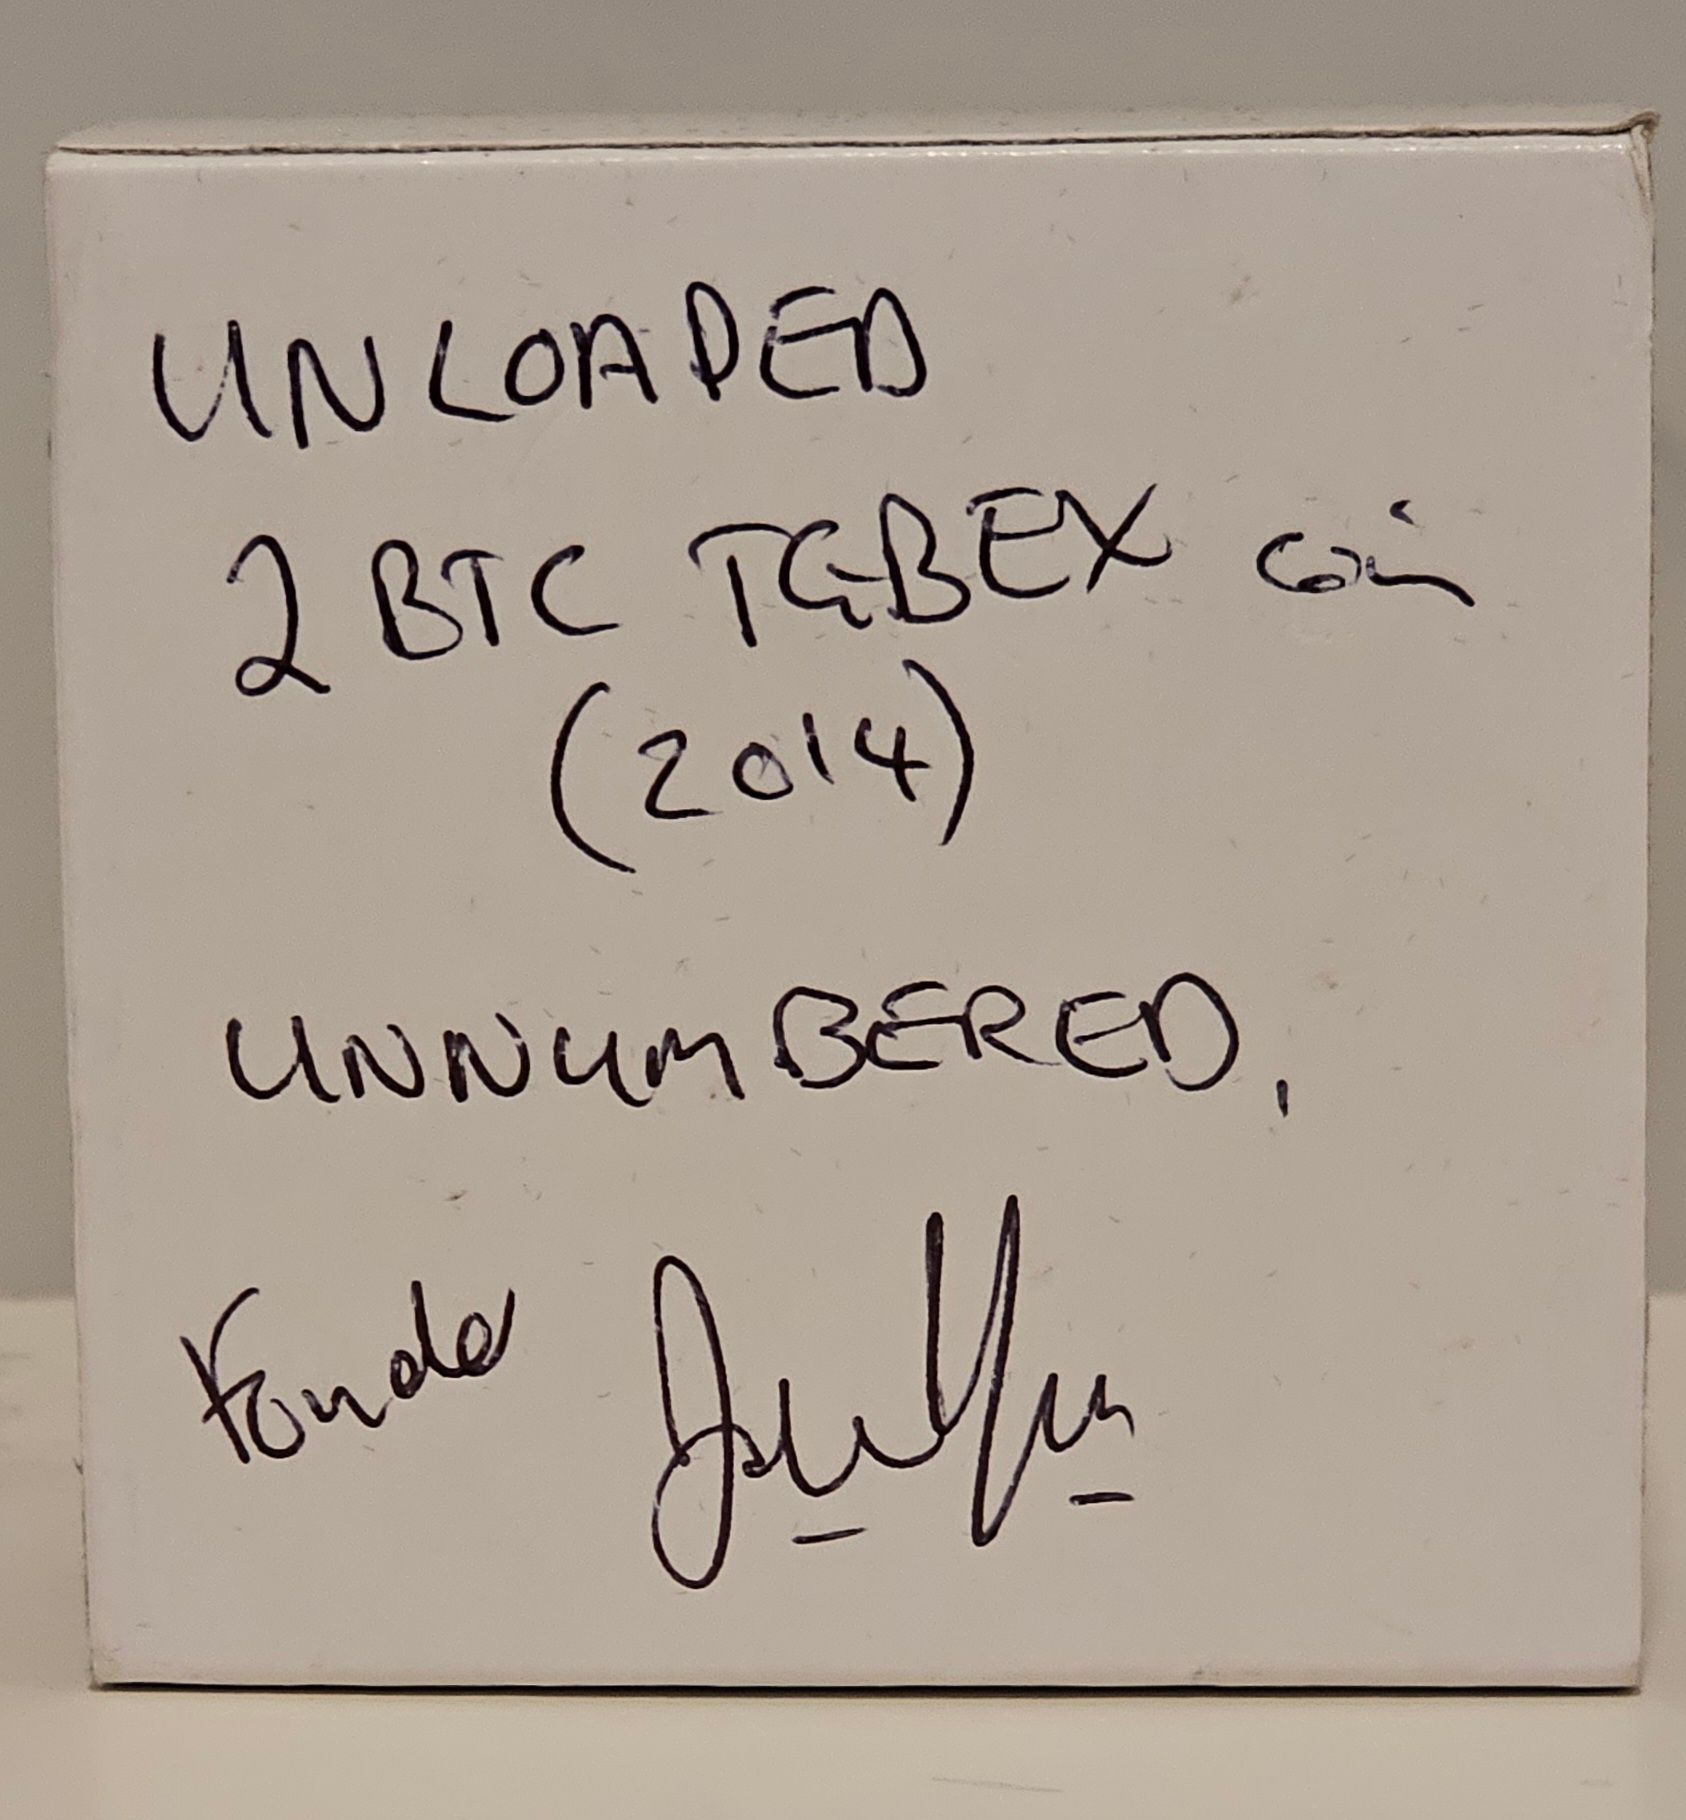 UNLOADED
2 BTC TGBEX coin
(2014)
UNNUMBERED.
Founder